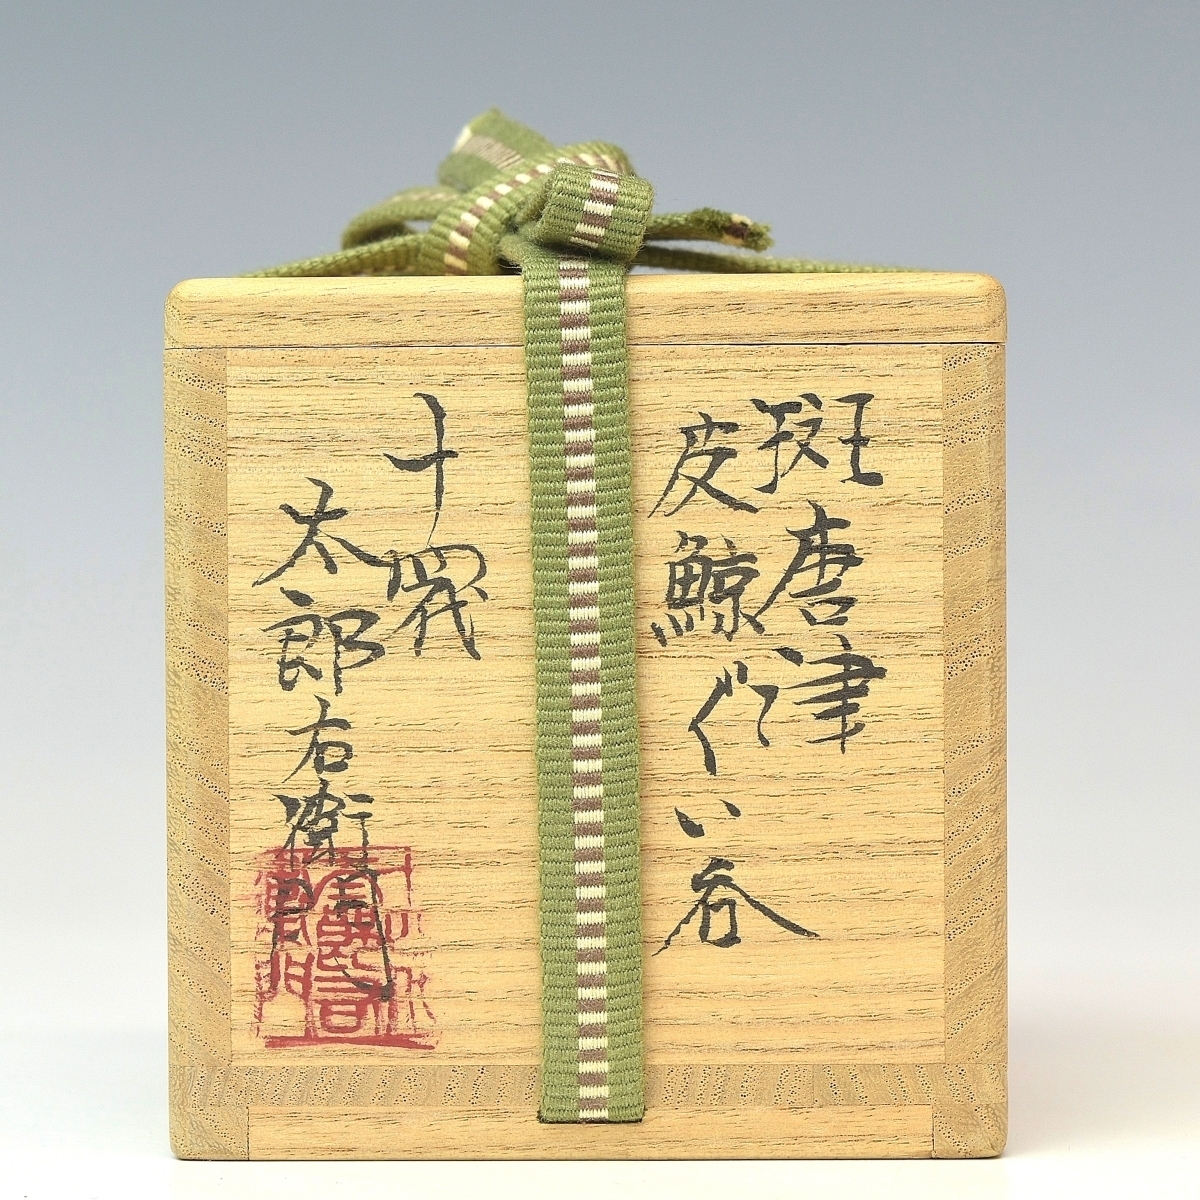 斑唐津
皮鯨ぐい呑
十四代
太郎右衛門